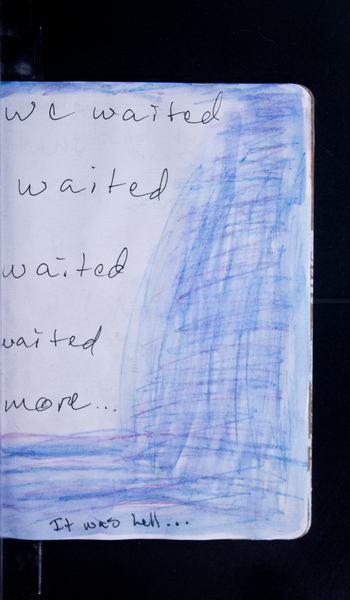 we waited
waited
waited
waited
more...
It was hell...